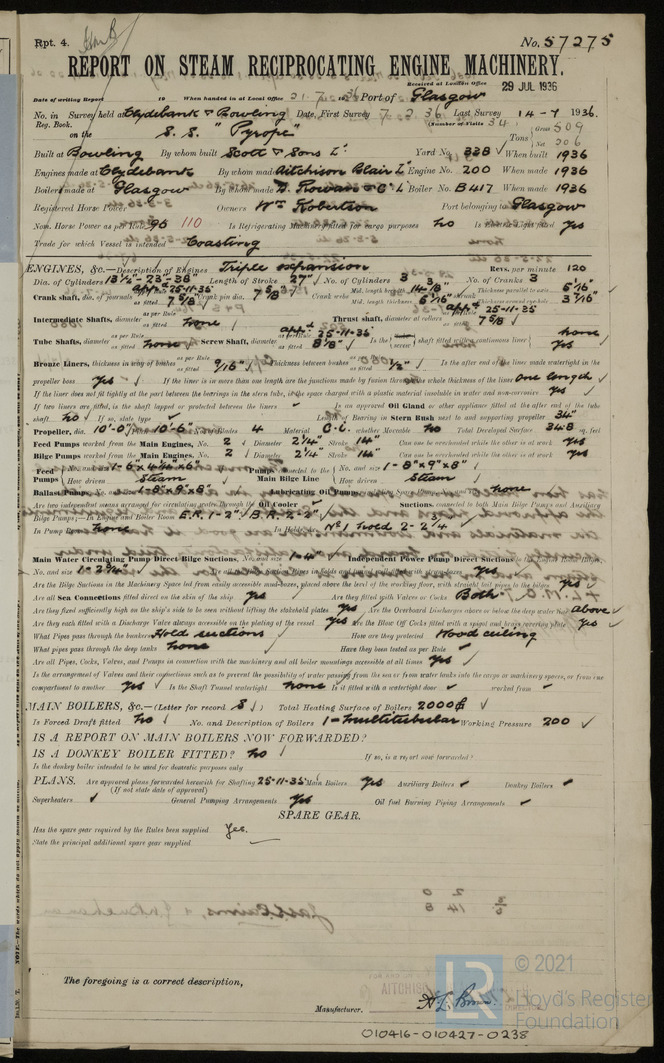 Rpt. 4. No. 57275
REPORT ON STEAM RECIPROCATING ENGINE MACHINERY.
Received at London Office 29 JUL 1936
Date of writing Report 19 When handed in at Local Office 21. 7. 36 Port of Glasgow
No. in Survey held at Clydebank & Bowling Date, First Survey 7. 2. 36 Last Survey 14-7 1936.
Reg. Book. (Number of Visits 34)
on the S.S. "Pyrope" Tons Gross 509 Net 206
Built at Bowling By whom built Scott & Sons Ld. Yard No. 338 When built 1936
Engines made at Clydebank By whom made Aitchison Blair Ld Engine No. 200 When made 1936
Boilers made at Glasgow By whom made D. Rowan & Co Ld Boiler No. B417 When made 1936
Registered Horse Power Owners Wm Robertson Port belonging to Glasgow
Nom. Horse Power as per Rule 96 110 Is Refrigerating Machinery fitted for cargo purposes no Is Electric Light fitted yes
Trade for which Vessel is intended Coasting
ENGINES, &c.—Description of Engines Triple expansion Revs. per minute 120
Dia. of Cylinders 13½"-23"-38" Length of Stroke 27" No. of Cylinders 3 No. of Cranks 3
Crank shaft, dia. of journals as fitted 7 5/8 Crank pin dia. 7 7/8
Intermediate Shafts, as fitted none Thrust shaft, diameter at collars as fitted 7 5/8
Tube Shafts, as fitted none Screw Shaft, as fitted 8 1/8" Is the shaft fitted with a continuous liner yes
Bronze Liners, thickness in way of bushes as fitted 9/16" Thickness between bushes as fitted 1/2" Is the after end of the liner made watertight in the
propeller boss yes If the liner is in more than one length are the junctions made by fusion through the whole thickness of the liner one length
If the liner does not fit tightly at the part between the bearings in the stern tube, is the space charged with a plastic material insoluble in water and non-corrosive yes
If two liners are fitted, is the shaft lapped or protected between the liners Is an approved Oil Gland or other appliance fitted at the after end of the tube
shaft no If so, state type Length of Bearing in Stern Bush next to and supporting propeller 34"
Propeller, dia. 10'-0" Pitch 10'-6" No. of Blades 4 Material C.I. whether Moveable no Total Developed Surface 34.8 sq. feet
Feed Pumps worked from the Main Engines, No. 2 Diameter 2¼" Stroke 14" Can one be overhauled while the other is at work yes
Bilge Pumps worked from the Main Engines, No. 2 Diameter 2¼" Stroke 14" Can one be overhauled while the other is at work yes
Feed Pumps No. and size How driven Steam Pumps connected to the Main Bilge Line No. and size 1-8"x9"x8" How driven Steam
Ballast Pumps, No. and size 1-8"x9"x8" Lubricating Oil Pumps, none
Are two independent means arranged for circulating water through the Oil Cooler Suctions, connected to both Main Bilge Pumps and Auxiliary
Bilge Pumps;—In Engine and Boiler Room E.R. 1-2" B.R. 2-2"
In Pump Room none In Holds, &c. No 1 hold 2-2¼
Main Water Circulating Pump Direct Bilge Suctions, No. and size 1-4" Independent Power Pump Direct Suctions to the Engine Room Bilges,
No. and size 1-2¾" yes
Are the Bilge Suctions in the Machinery Space led from easily accessible mud-boxes, placed above the level of the working floor, with straight tail pipes to the bilges yes
Are all Sea Connections fitted direct on the skin of the ship yes Are they fitted with Valves or Cocks Both
Are they fixed sufficiently high on the ship's side to be seen without lifting the stokehold plates yes Are the Overboard Discharges above or below the deep water line above
Are they each fitted with a Discharge Valve always accessible on the plating of the vessel yes Are the Blow Off Cocks fitted with a spigot and brass covering plate yes
What Pipes pass through the bunkers Hold suctions How are they protected Wood ceiling
What pipes pass through the deep tanks none Have they been tested as per Rule
Are all Pipes, Cocks, Valves, and Pumps in connection with the machinery and all boiler mountings accessible at all times yes
Is the arrangement of Valves and their connections such as to prevent the possibility of water passing from the sea or from water tanks into the cargo or machinery spaces, or from one
compartment to another yes Is the Shaft Tunnel watertight none Is it fitted with a watertight door worked from
MAIN BOILERS, &c.—(Letter for record S) Total Heating Surface of Boilers 2000
Is Forced Draft fitted no No. and Description of Boilers 1-multitubular Working Pressure 200
IS A REPORT ON MAIN BOILERS NOW FORWARDED?
IS A DONKEY BOILER FITTED? no If so, is a report now forwarded?
Is the donkey boiler intended to be used for domestic purposes only
PLANS. Are approved plans forwarded herewith for Shafting 25-11-35 Main Boilers yes Auxiliary Boilers Donkey Boilers
(If not state date of approval)
Superheaters General Pumping Arrangements yes Oil fuel Burning Piping Arrangements
SPARE GEAR.
Has the spare gear required by the Rules been supplied Yes.
State the principal additional spare gear supplied
The foregoing is a correct description,
Manufacturer.
© 2021
LR Lloyd's Register
Foundation
010416-010427-0238